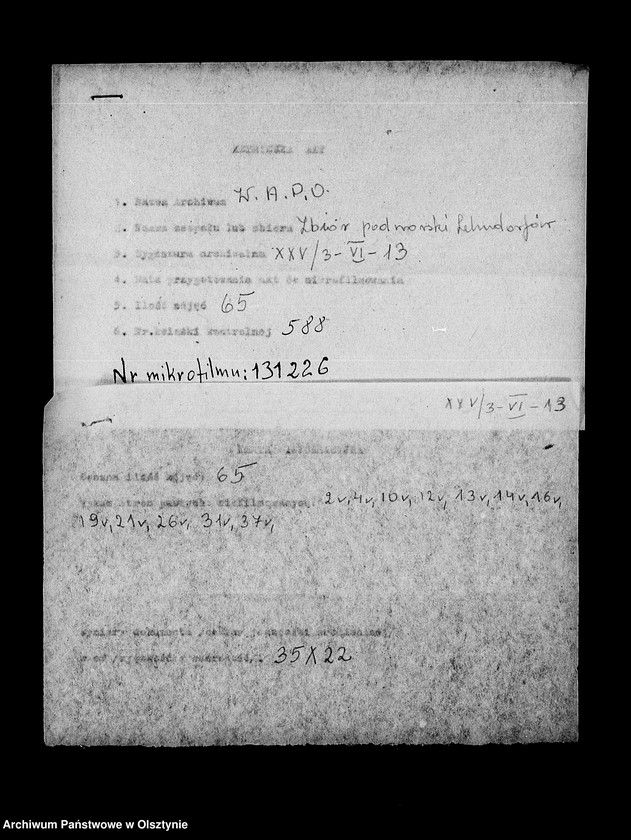 METRYCZKA AKT
1. Nazwa Archiwum W.A.P.O.
2. Nazwa zespołu lub zbioru Zbiór podworski Lehndorfów
3. Sygnatura archiwalna XXV/3-VI-13
4. Data przygotowania akt do mikrofilmowania
5. Ilość zdjęć 65
6. Nr.książki kontrolnej 588
Nr mikrofilmu: 131226
XXV/3-VI-13
KARTA INFORMACYJNA
ilość zdjęć: 65
stron pustych, 2v, 4v, 10v, 12v, 13v, 14v, 16v,
19v, 21v, 26v, 31v, 37v,
Wymiary dokumentu
35X22
Archiwum Państwowe w Olsztynie